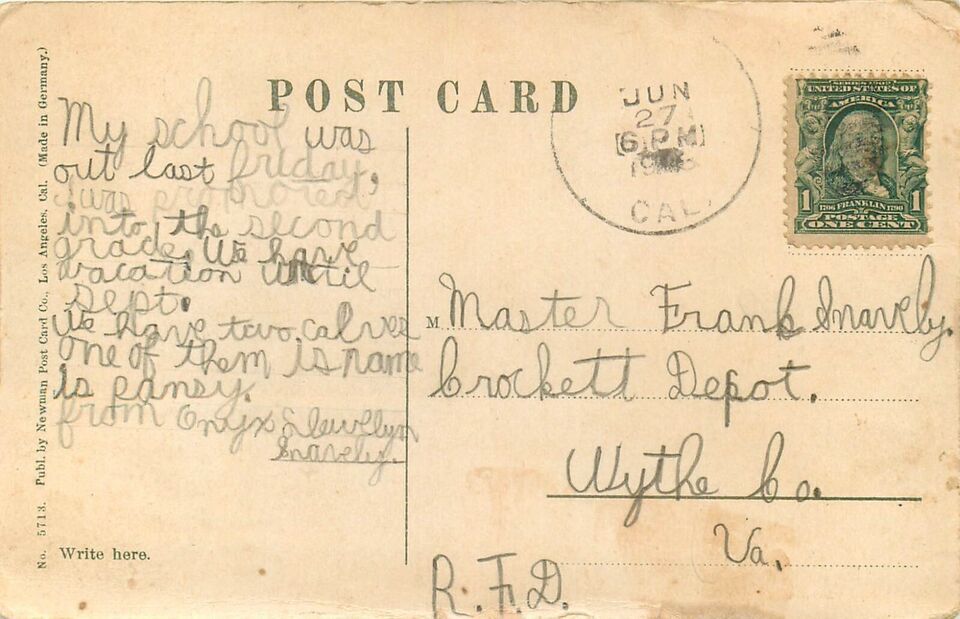 POST CARD
No. 5713. Publ. by Newman Post Card Co., Los Angeles, Cal. (Made in Germany.)
My school was
out last friday,
I was promoted
into the second
grade. We have
vacation until
Sept.
We have two calves
one of them is name
is pansy.
from Onyx Llewllyn
Snavely.
Write here.
JUN
27
6 PM
CAL.
SERIES 1902
UNITED STATES OF
AMERICA
1 1706 FRANKLIN 1790 1
POSTAGE
ONE CENT
M Master Frank Snavely.
Crockett Depot.
Wythe Co.
Va.
R.F.D.